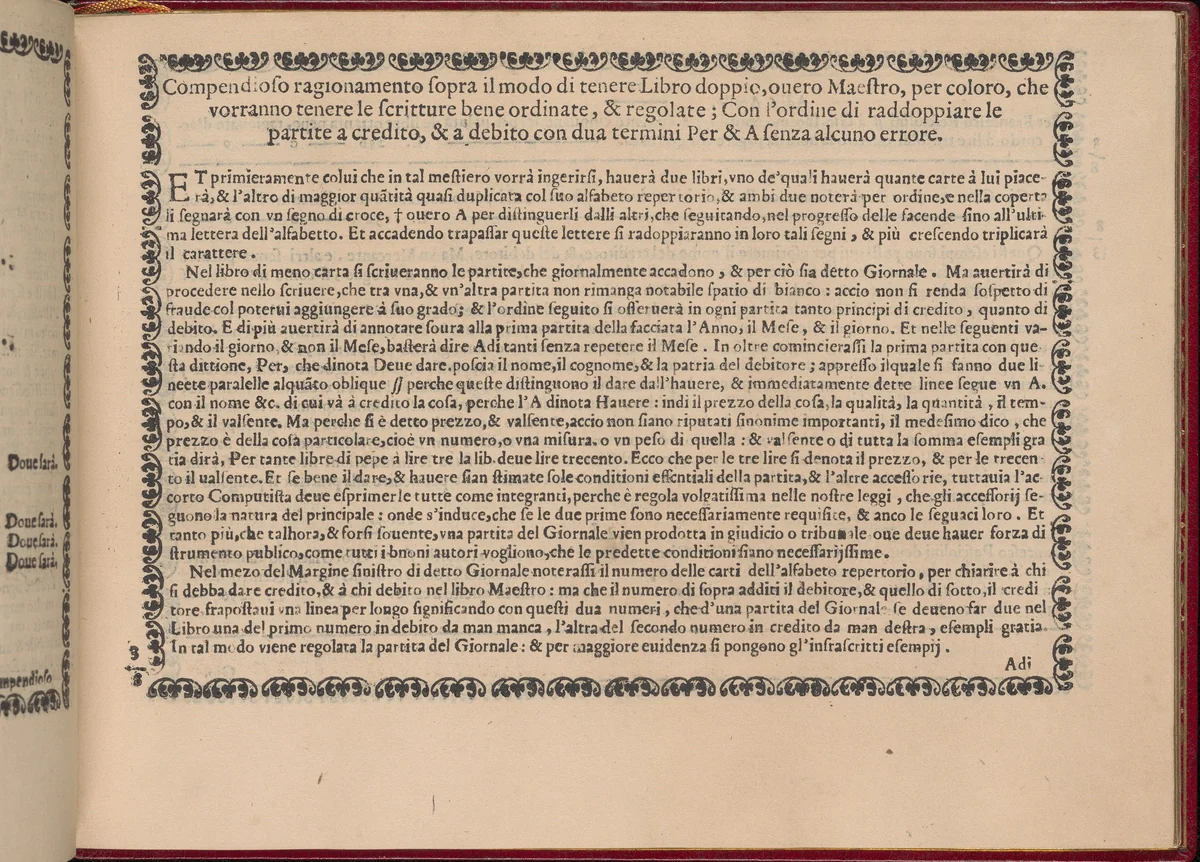 Doue sarà.
Doue sarà.
Doue sarà.
Doue sarà.
mpendioso
Compendioſo ragionamento ſopra il modo di tenere Libro doppio, ouero Maeſtro, per coloro, che
vorranno tenere le ſcritture bene ordinate, & regolate; Con l'ordine di raddoppiare le
partite a credito, & a debito con dua termini Per & A ſenza alcuno errore.
ET primieramente colui che in tal meſtiero vorrà ingerirſi, hauerà due libri, vno de'quali hauerà quante carte à lui piace-
rà, & l'altro di maggior quãtità quaſi duplicata col ſuo alfabeto repertorio, & ambi due noterà per ordine, e nella coperta
li ſegnarà con vn ſegno di croce, † ouero A per diſtinguerli dalli altri, che ſeguitando, nel progreſſo delle facende ſino all'ulti-
ma lettera dell'alfabetto. Et accadendo trapaſſar queſte lettere ſi radoppiaranno in loro tali ſegni, & più creſcendo triplicarà
il carattere.
Nel libro di meno carta ſi ſcriueranno le partite, che giornalmente accadono, & per ciò ſia detto Giornale. Ma auertirà di
procedere nello ſcriuere, che tra vna, & vn'altra partita non rimanga notabile ſpatio di bianco: accio non ſi renda ſoſpetto di
fraude col poterui aggiungere à ſuo grado; & l'ordine ſeguito ſi oſſeruerà in ogni partita tanto principi di credito, quanto di
debito. E di più auertirà di annotare ſoura alla prima partita della facciata l'Anno, il Meſe, & il giorno. Et nelle ſeguenti va-
riando il giorno, & non il Meſe, baſterà dire Adi tanti ſenza repetere il Meſe. In oltre comincieraſſi la prima partita con que
ſta dittione, Per, che dinota Deue dare. poſcia il nome, il cognome, & la patria del debitore; appreſſo ilquale ſi fanno due li-
neete paralelle alquãto oblique // perche queſte diſtinguono il dare dall'hauere, & immediatamente dette linee ſegue vn A.
con il nome &c. di cui và à credito la coſa, perche l'A dinota Hauere: indi il prezzo della coſa, la qualità, la quantità, il tem-
po, & il valſente. Ma perche ſi è detto prezzo, & valſente, accio non ſiano riputati ſinonime importanti, il medeſimo dico, che
prezzo è della coſa particolare, cioè vn numero, o vna miſura. o vn peſo di quella: & valſente o di tutta la ſomma eſempli gra
tia dirà, Per tante libre di pepe à lire tre la lib. deue lire trecento. Ecco che per le tre lire ſi denota il prezzo, & per le trecen-
to il ualſente. Et ſe bene il dare, & hauere ſian ſtimate ſole conditioni eſſentiali della partita, & l'altre acceſſorie, tuttauia l'ac-
corto Computiſta deue eſprimerle tutte come integranti, perche è regola volgatiſſima nelle noſtre leggi, che gli acceſſorij ſe-
guono la natura del principale: onde s'induce, che ſe le due prime ſono neceſſariamente requiſite, & anco le ſeguaci loro. Et
tanto più, che talhora, & forſi ſouente, vna partita del Giornale vien prodotta in giudicio o tribunale oue deue hauer forza di
ſtrumento publico, come tutti i buoni autori vogliono, che le predette conditioni ſiano neceſſarijſſime.
Nel mezo del Margine ſiniſtro di detto Giornale noteraſſi il numero delle carti dell'alfabeto repertorio, per chiarire à chi
ſi debba dare credito, & à chi debito nel libro Maeſtro: ma che il numero di ſopra additi il debitore, & quello di ſotto, il credi
tore frapoſtaui vna linea per longo ſignificando con queſti dua numeri, che d'una partita del Giornale ſe deueno far due nel
Libro una del primo numero in debito da man manca, l'altra del ſecondo numero in credito da man deſtra, eſempli gratia.
In tal modo viene regolata la partita del Giornale: & per maggiore euidenza ſi pongono gl'infraſcritti eſempij.
3
8
Adi